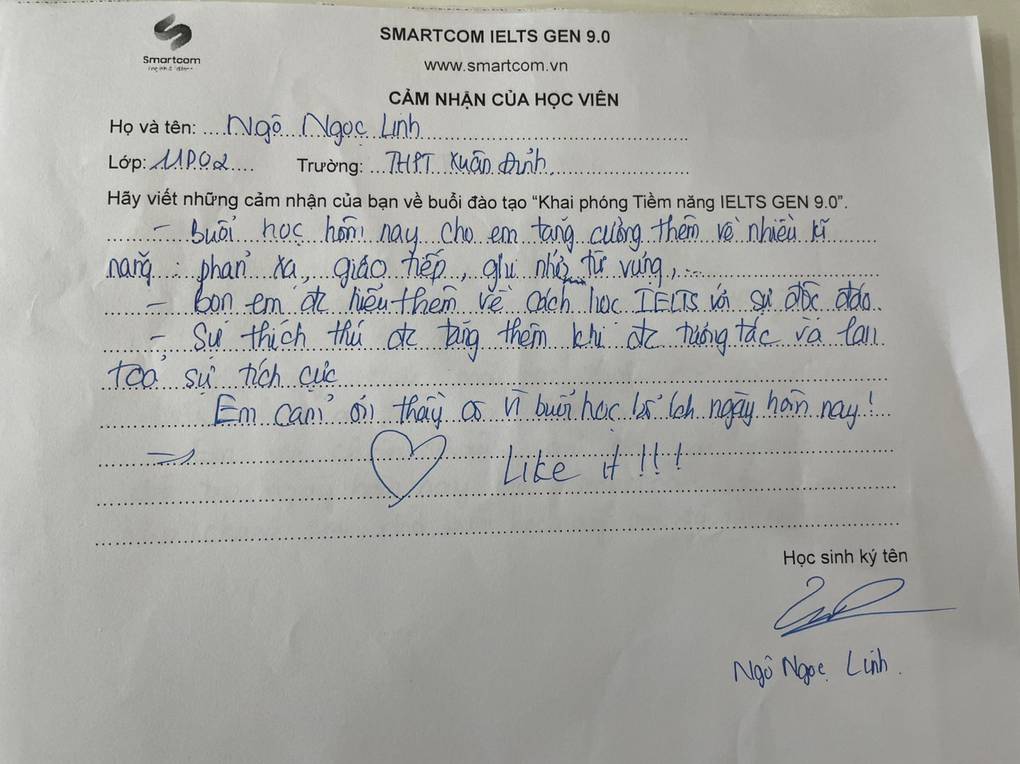 Smartcom
SMARTCOM IELTS GEN 9.0
www.smartcom.vn
CẢM NHẬN CỦA HỌC VIÊN
Họ và tên: Ngô Ngọc Linh
Lớp: 11D02 Trường: THPT Xuân Đỉnh
Hãy viết những cảm nhận của bạn về buổi đào tạo “Khai phóng Tiềm năng IELTS GEN 9.0”.
- Buổi học hôm nay cho em tăng cường thêm về nhiều kĩ
năng : phản xạ, giao tiếp, ghi nhớ từ vựng,...
- Bọn em đc hiểu thêm về cách học IELTS với sự độc đáo.
- Sự thích thú đc tăng thêm khi đc tương tác và lan
toả sự tích cực
Em cảm ơn thầy cô vì buổi học bổ ích ngày hôm nay!
Like it!!!
Học sinh ký tên
Ngô Ngọc Linh.